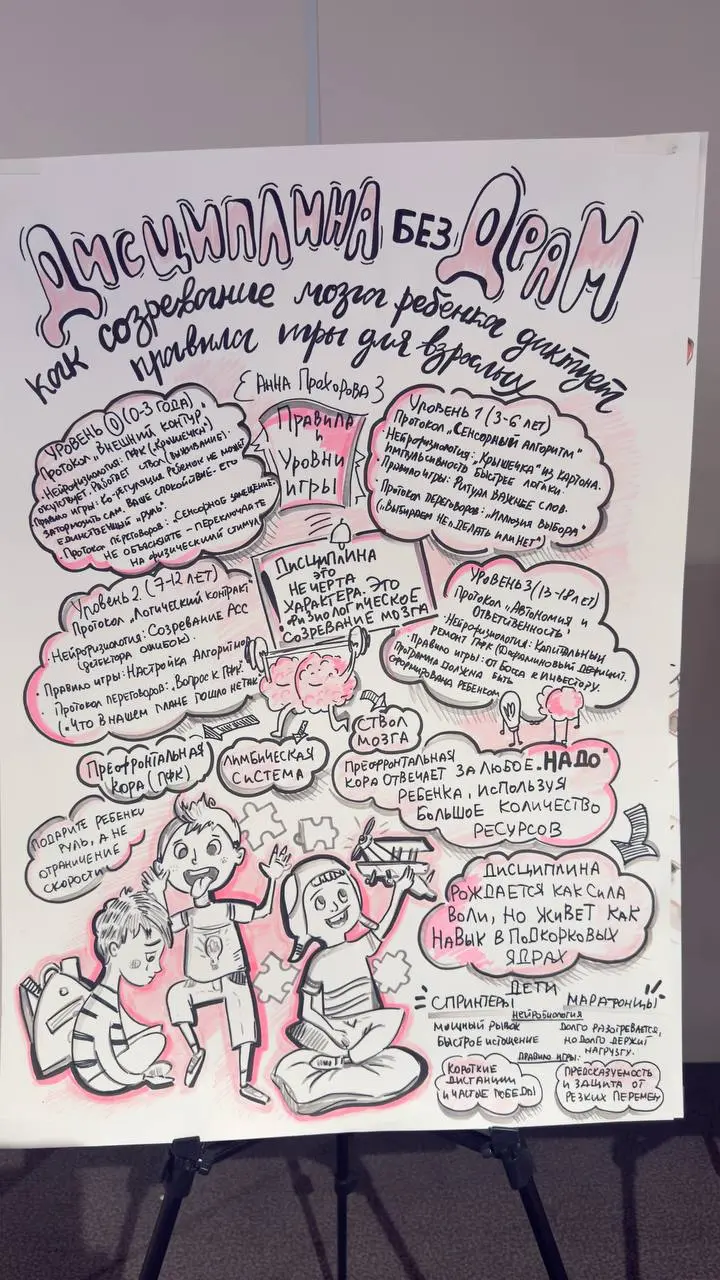 Дисциплина без Драм
как созревание мозга ребенка диктует
правила игры для взрослых
{Анна Прохорова}
Правила
и
Уровни
игры
Уровень 0 (0-3 года)
Протокол „Внешний контур"
• Нейрофизиология: ПФК („Крышечка")
отсутствует. Работает ствол (выживание).
Правило игры: Ко-регуляция Ребенок не может
затормозить сам. Ваше спокойствие- его
единственный „руль".
• Протокол переговоров: „Сенсорное замещение.
Не объясняйте - переключайте
на физический стимул
Уровень 1 (3-6 лет)
Протокол „Сенсорный Алгоритм"
• Нейрофизиология: „Крышечка" из картона.
Импульсивность быстрее логики.
• Правило игры: Ритуал важнее слов.
• Протокол переговоров: „Иллюзия выбора"
(„Выбираем не „делать или нет")
Дисциплина
это
не черта
характера. Это
физиологическое
созревание мозга
Уровень 2. (7-12 лет)
Протокол „Логический контракт
• Нейрофизиология: Созревание АСС
(детектора ошибок).
• Правило игры: Настройка Алгоритмов
• Протокол переговоров: „Вопрос к ПФК".
(„Что в нашем плане пошло не так
Уровень 3 (13-18 лет)
Протокол „Автономия и
Ответственность"
Нейрофизиология: Капитальный
ремонт ПФК (Дофаминовый дефицит.
• Правило игры: От босса к инвестору.
Программа должна быть
сформирована ребенком
Префронтальная
кора (ПФК)
Лимбическая
система
Ствол
мозга
Префронтальная
кора отвечает за любое „НАДО"
ребенка, используя
большое количество
ресурсов
Подарите ребенку
руль, а не
ограничение
скорости
Дисциплина
рождается как сила
воли, но живет как
навык в подкорковых
ядрах
Дети
Спринтеры Марафонцы
Нейробиология
Мощный рывок
Быстрое истощение
Долго разогревается,
но долго держит
нагрузку.
Правило игры:
Короткие
дистанции
и частые победы
Предсказуемость
и защита от
резких перемен